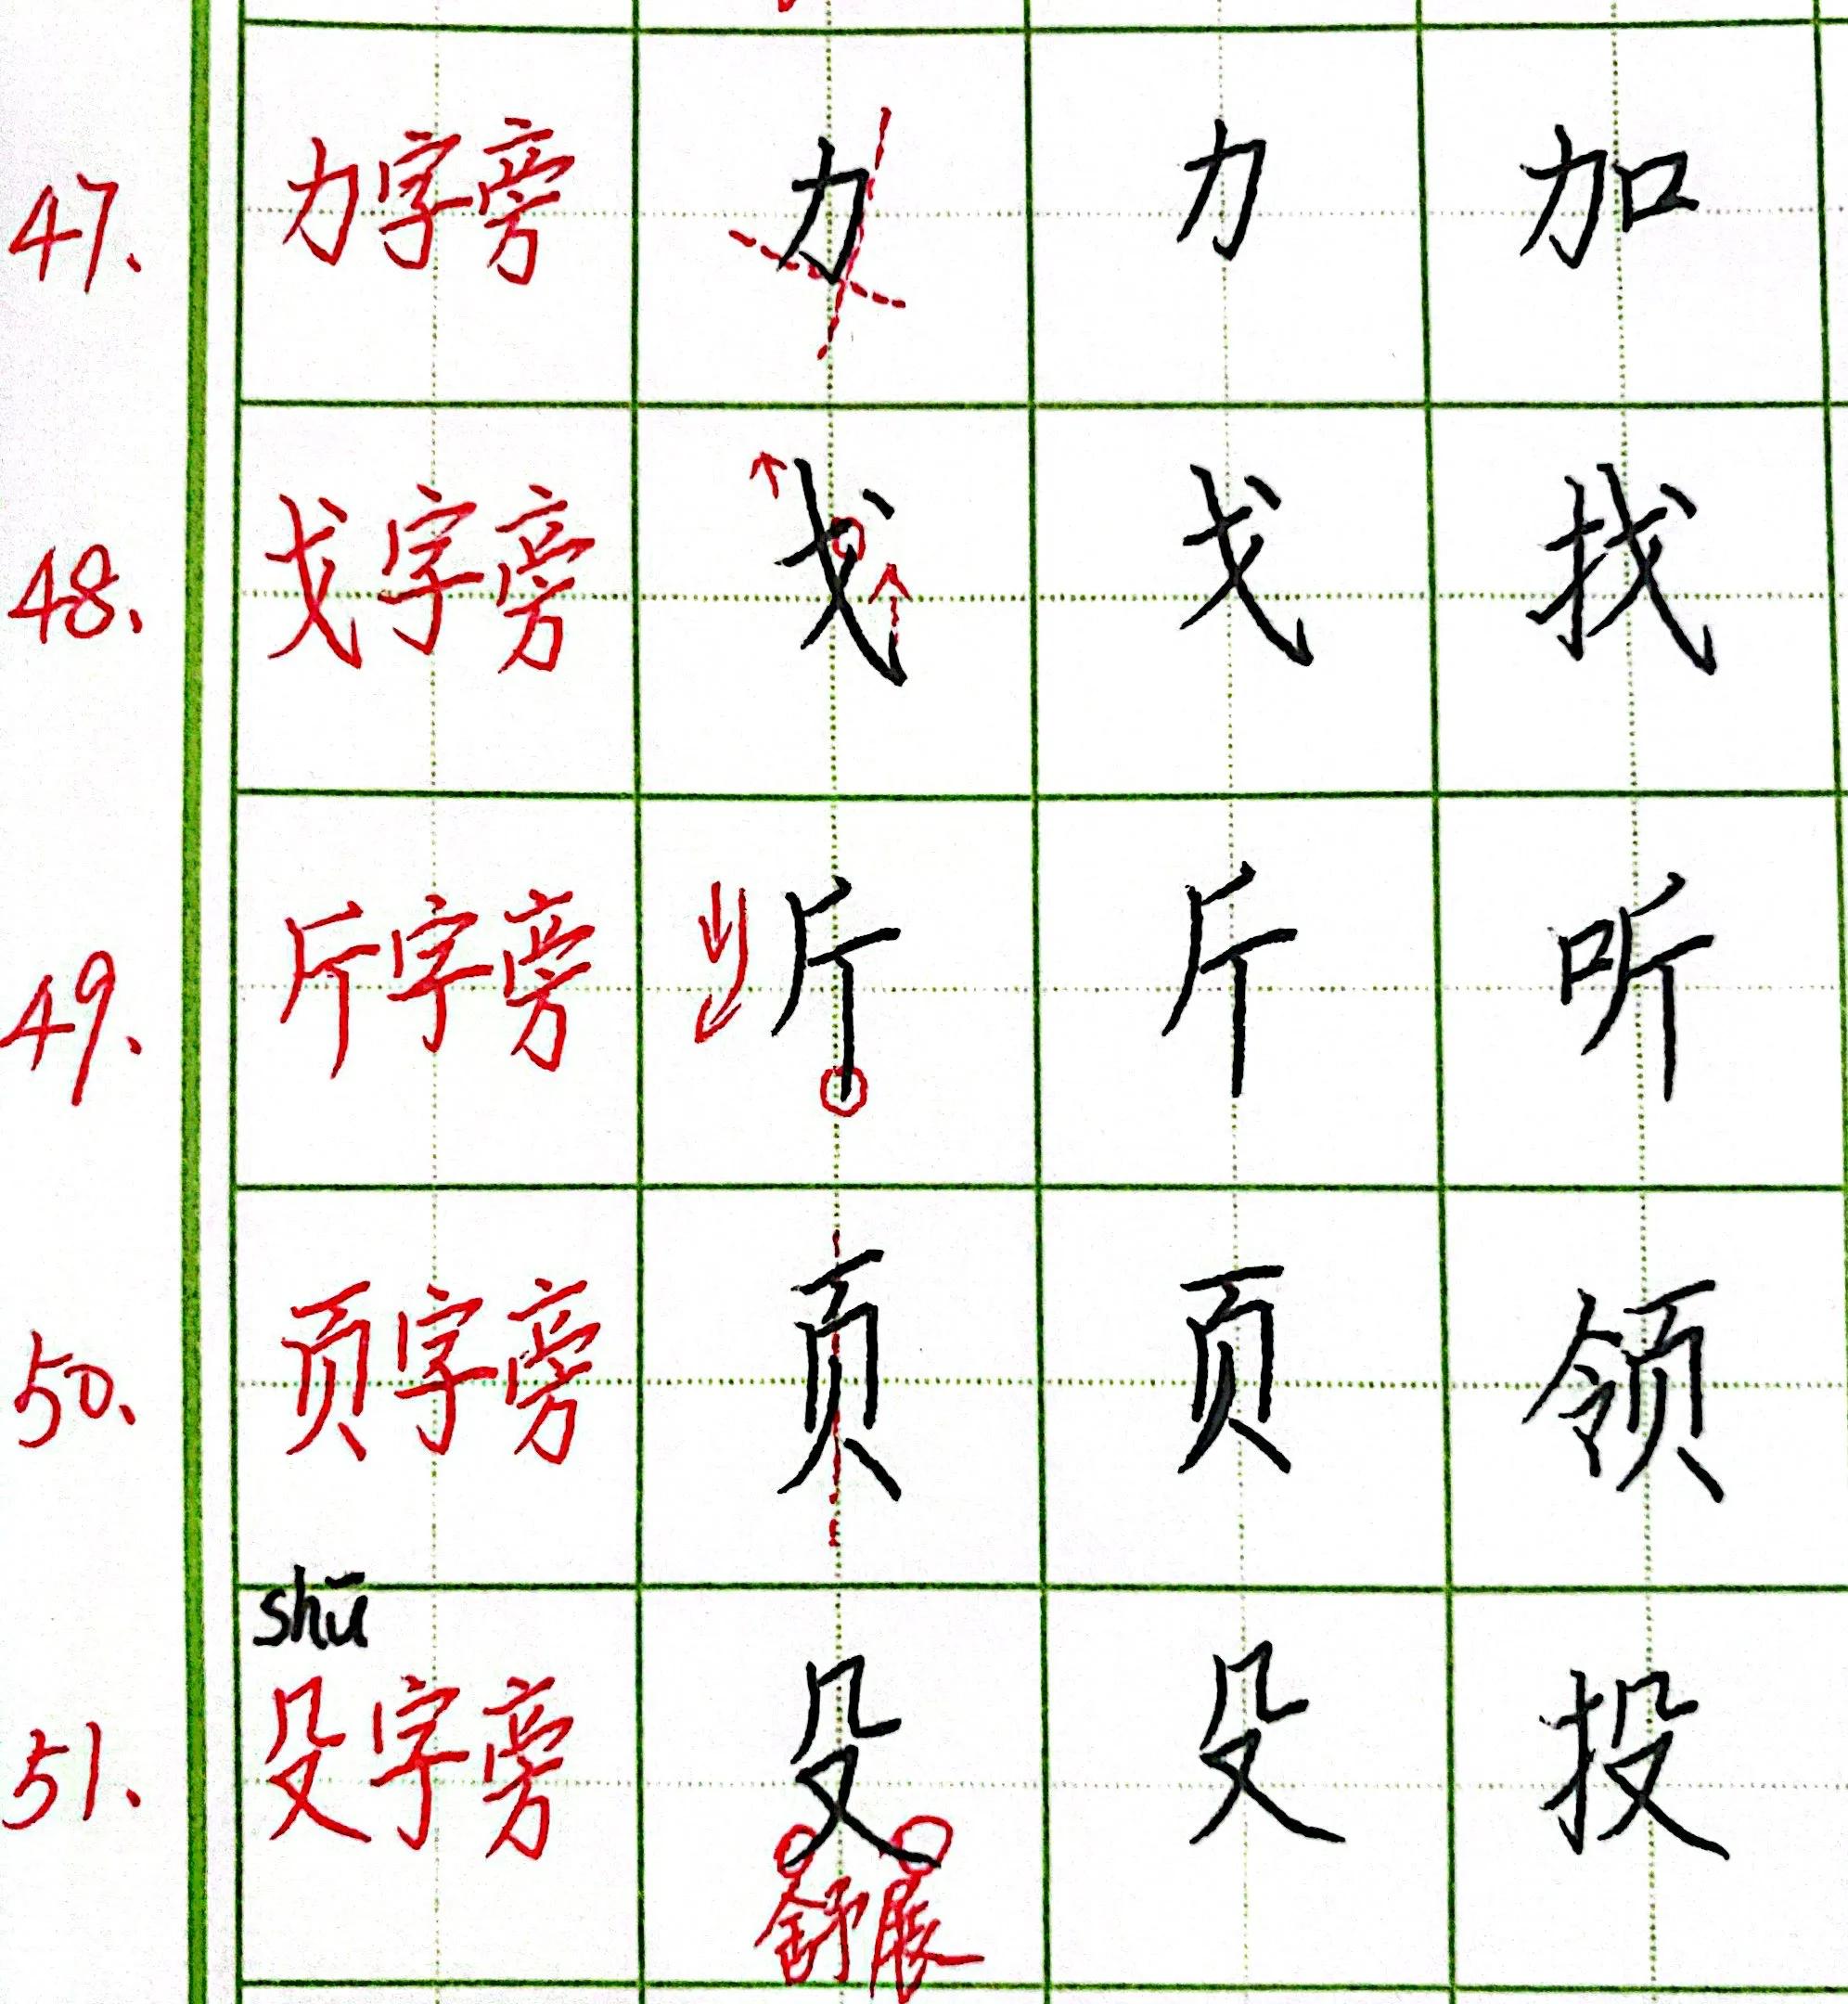 47. 力字旁 力 力 加
48. 戈字旁 戈 戈 找
49. 斤字旁 斤 斤 听
50. 页字旁 页 页 领
shū
51. 殳字旁 殳 殳 投
舒展